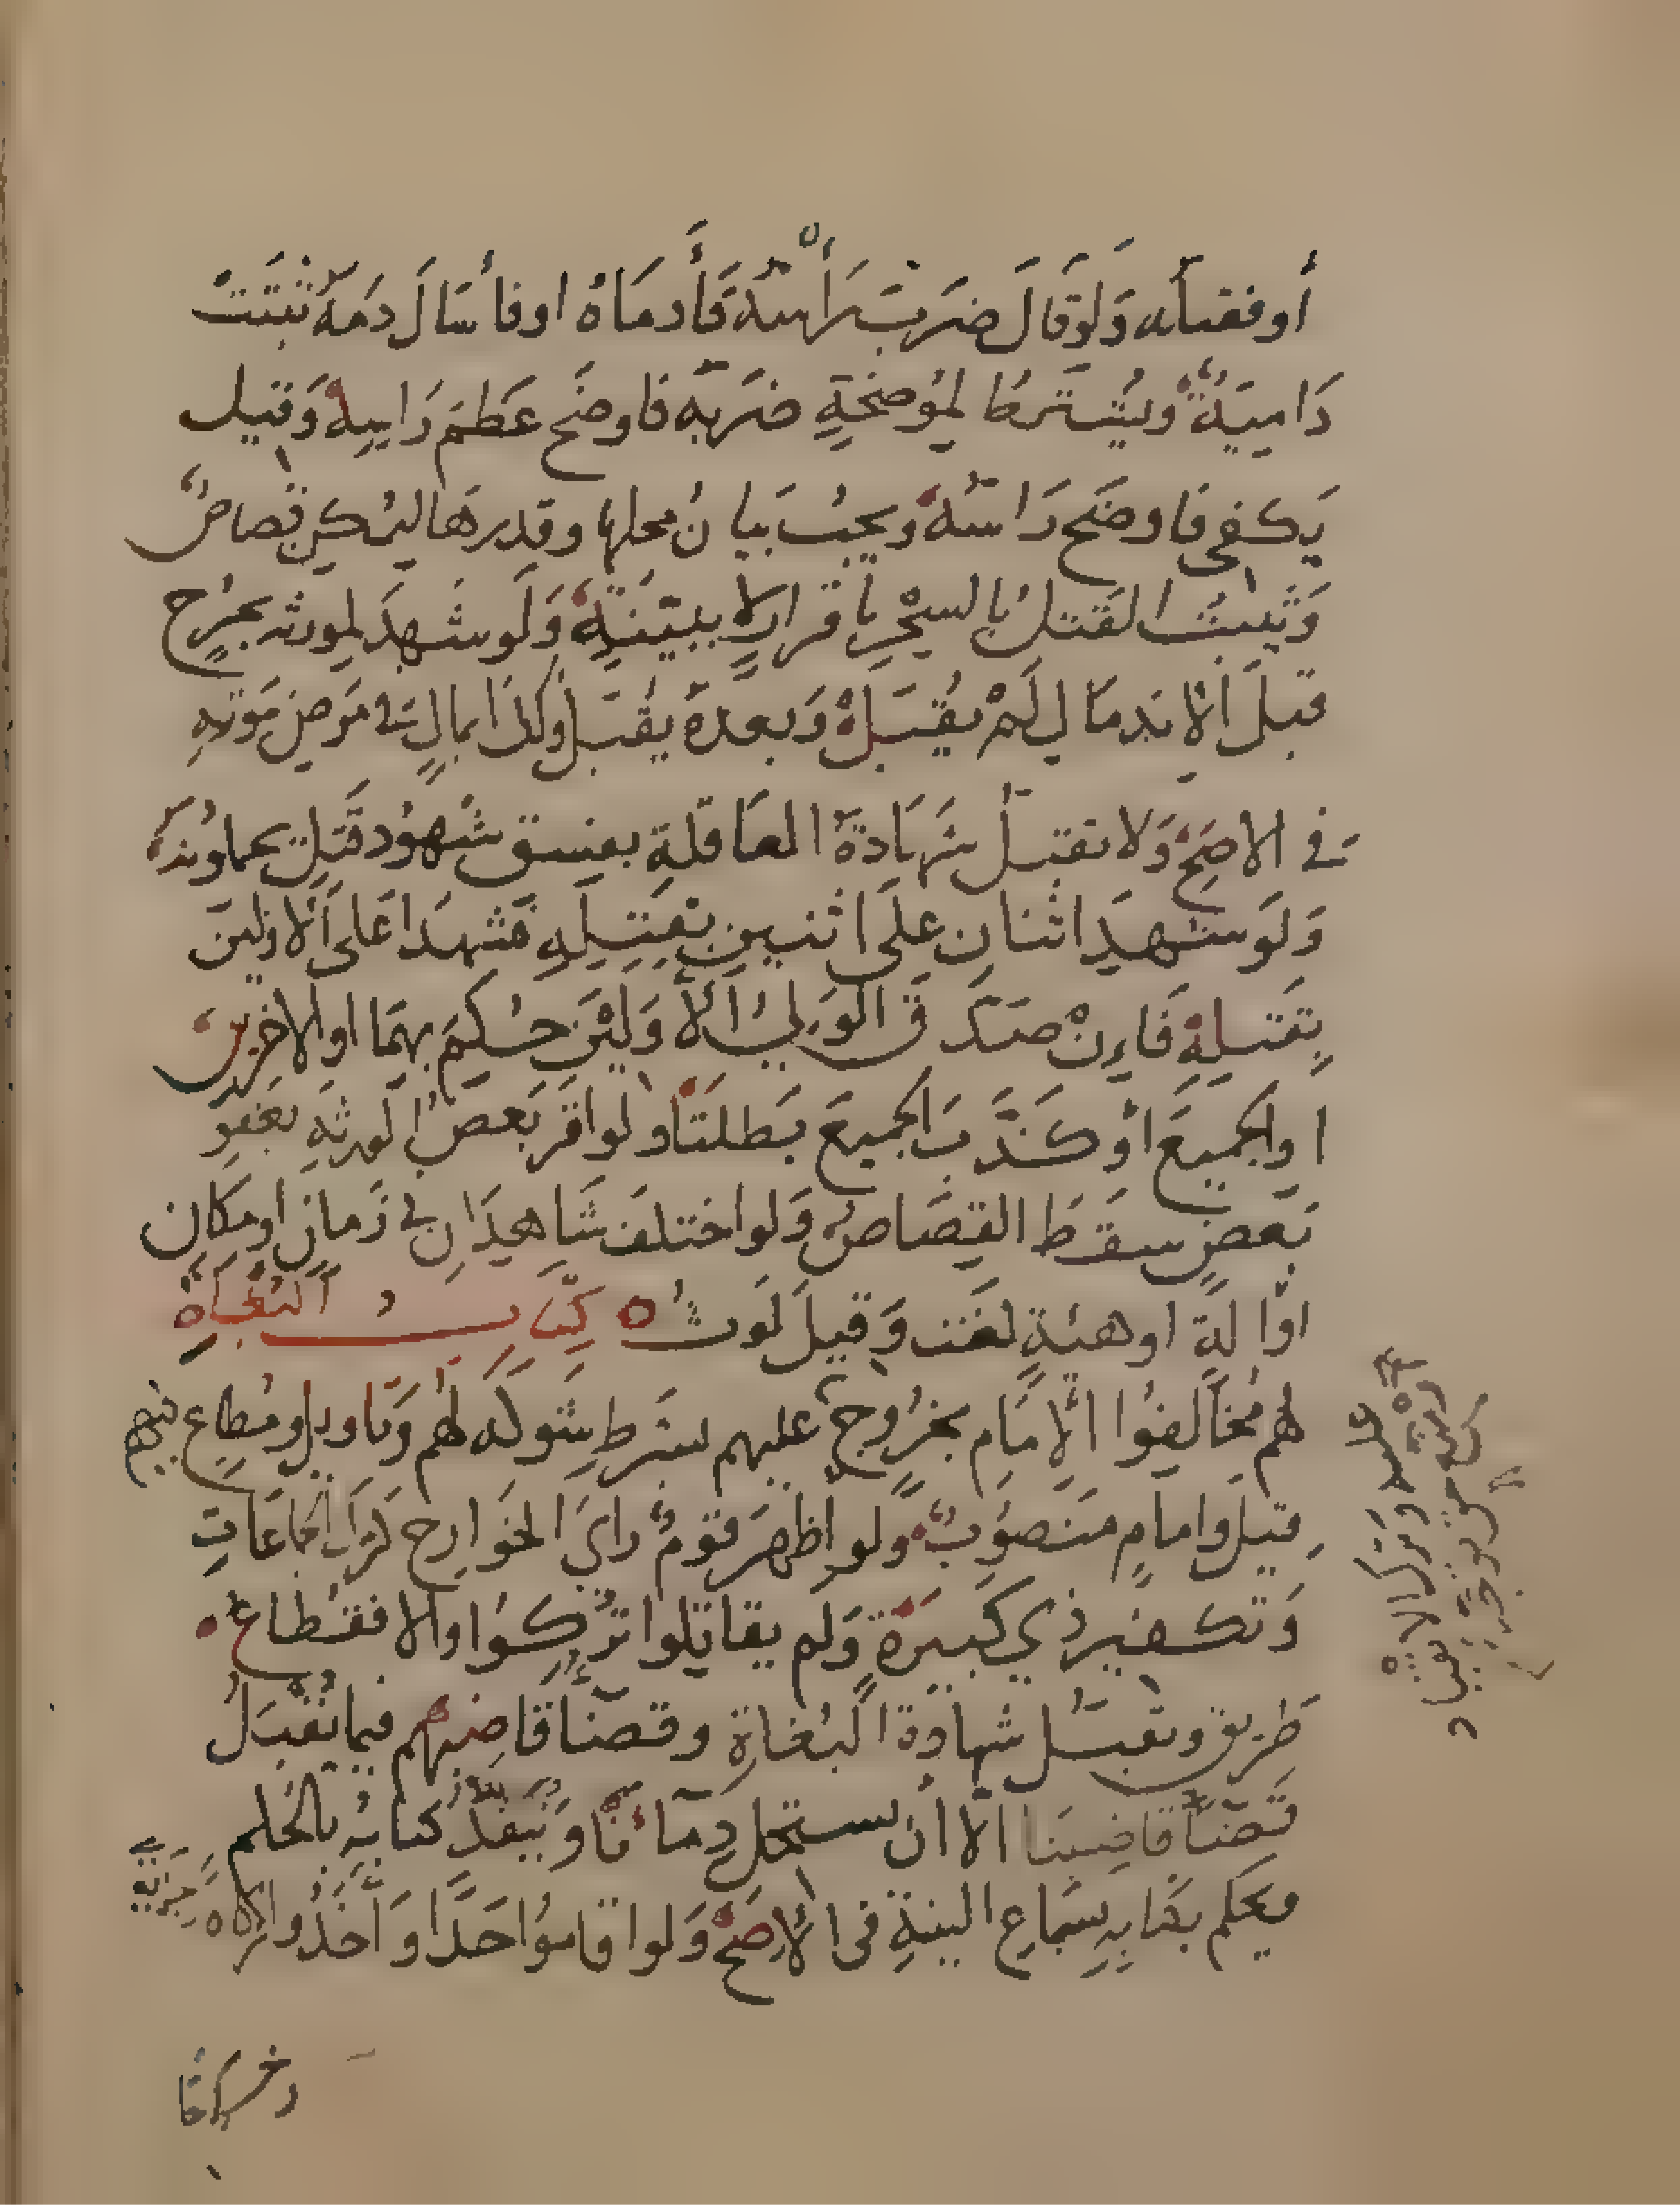 أو فقتله ولو قال ضرب رأسه فأدماه او فأسال دمه ثبتت
دامية ويشترط لموضحة ضربه فاوضح عظم راسه وقيل
يكفي فاوضح راسه ويجب بيان محلها وقدرها ليمكن قصاص
ويثبت القتل بالسحر باقرار لا ببينة ولو شهد لمورثه بجرح
قبل الاندمال لم يقبل وبعده يقبل وكذا بمال في مرض موته
في الاصح ولا تقبل شهادة العاقلة بفسق شهود قتل يحملونه
ولو شهد اثنان على اثنين بقتله فشهدا على الاولين
بقتله فإن صدق الولي الأولين حكم بهما او الاخرين
او الجميع أو كذب الجميع بطلتا ولو اقر بعض الورثة بعفو
بعض سقط القصاص ولو اختلف شاهدان في زمان او مكان
او آلة او هيئة لغت وقيل لوث ه كتاب البغاة
هم مخالفوا الإمام بخروج عليهم بشرط شوكة لهم وتاويل ومطاع فيهم
قيل وامام منصوب ولو اظهر قوم راي الخوارج كترك الجماعات
وتكفير ذي كبيرة ولم يقاتلوا تركوا والا فقطاع
طريق وتقبل شهادة البغاة وقضاء قاضيهم فيما يقبل
قضاء قاضينا الا ان يستحل دماءنا وينفذ كتابه بالحكم
ويحكم بكتابه بسماع البينة في الاصح ولو اقاموا حدا واخذوا زكاة وجزية
عليه وترك الانقياد